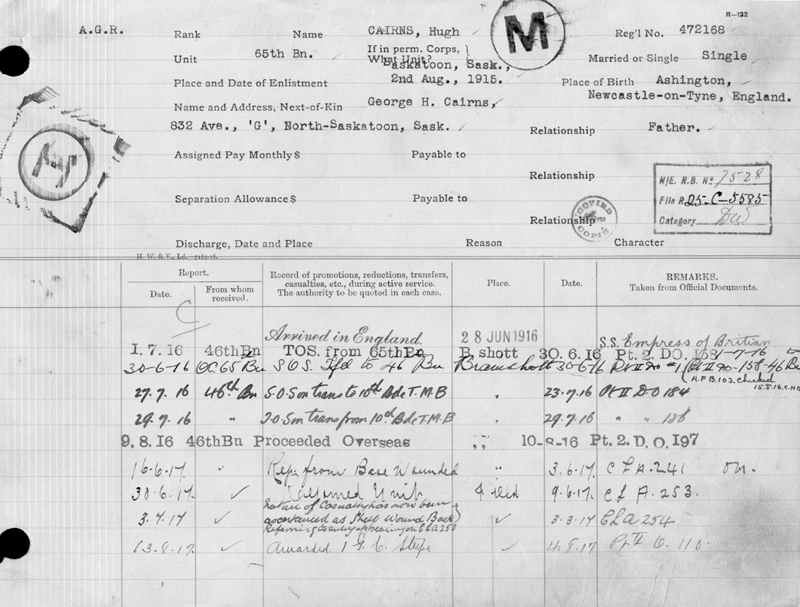 R-122
A.G.R. Rank Name CAIRNS, Hugh Reg'l No. 472168
M
Unit 65th Bn. If in perm. Corps, What Unit? Married or Single Single
Saskatoon, Sask.,
Place and Date of Enlistment 2nd Aug., 1915. Place of Birth Ashington,
Newcastle-on-Tyne, England.
Name and Address, Next-of-Kin George H. Cairns,
832 Ave., 'G', North-Saskatoon, Sask. Relationship Father.
Assigned Pay Monthly $ Payable to
Relationship
M/E. R.B. No 7528
File R. 25-C-5585
Category DW
Separation Allowance $ Payable to
COPIED
Relationship
Discharge, Date and Place Reason Character
H. W. & V., Ld.
Report. Record of promotions, reductions, transfers, casualties, etc., during active service. The authority to be quoted in each case. Place. Date. REMARKS. Taken from Official Documents.
Date. From whom received.
C
Arrived in England. 28 JUN 1916 S.S. Empress of Britian
1.7.16 46thBn TOS. from 65thBn B. shott 30.6.16 Pt. 2. DO. 158 1-7-16
30-6-16 OC 65 Bn S.O.S. Tfd to 46 Bn Bramshott 30-6-16 Pt II DO #1 Pt II DO 158-46 Bn
(A.F.B.103. Checked
27.7.16 46th Bn S.O.S on trans to 10th Bde T.M.B " 23.7.16 Pt II DO 184
29.7.16 " T.O.S on trans from 10th Bde T.M.B " 29.7.16 " " 186
9.8.16 46thBn Proceeded Overseas ;; 10-8-16 Pt. 2. D.O. 197
16.6.17. " Rep. from Base Wounded " 3.6.17. C L A. 241
30.6.17. Rejoined Unit Field 9.6.17. C L A. 253.
3.7.17 Nature of Casualty has now been ascertained as Shell Wound Back 3.3.17 CLA 254
13.8.17 Awarded 1 G. C. Stripe 4.8.17 Pt II O. 110.